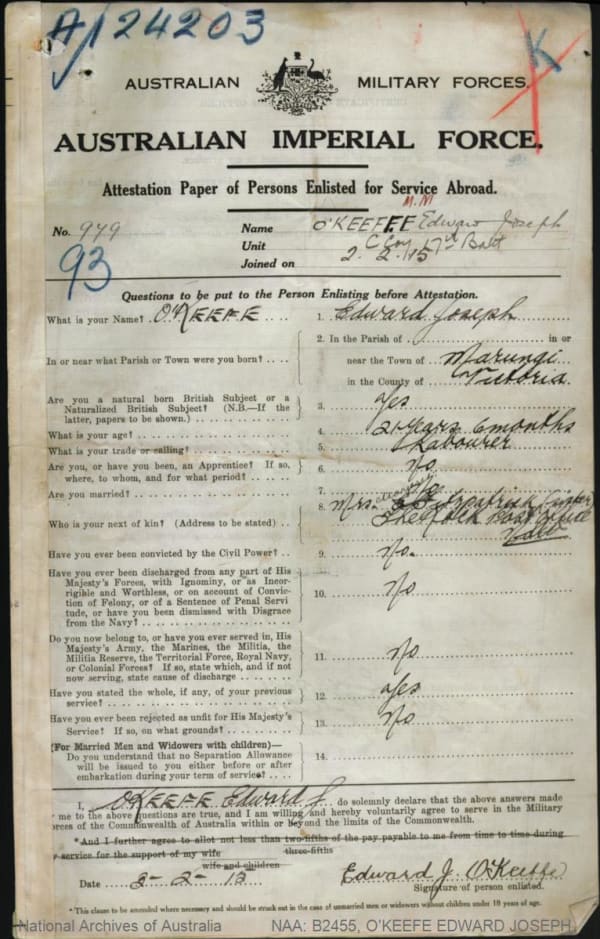 A/24203
K
AUSTRALIAN MILITARY FORCES.
AUSTRALIAN IMPERIAL FORCE.
Attestation Paper of Persons Enlisted for Service Abroad.
M.M
No. 979 Name O'KEEFE Edward Joseph
Unit C Coy 17th Batt
93
Joined on 2.2.15
Questions to be put to the Person Enlisting before Attestation.
What is your Name? O'KEEFE 1. Edward Joseph
2. In the Parish of in or
In or near what Parish or Town were you born? near the Town of Marungi
in the County of Victoria.
Are you a natural born British Subject or a
Naturalized British Subject? (N.B.—If the 3. Yes
latter, papers to be shown.)
What is your age? 4. 21 years 6 months
What is your trade or calling? 5. Labourer
Are you, or have you been, an Apprentice? If so, 6. No
where, to whom, and for what period?
Are you married? 7. No
8. Mrs. Fitzpatrick (sister)
Who is your next of kin? (Address to be stated) Post Office
Have you ever been convicted by the Civil Power? 9. No.
Have you ever been discharged from any part of His
Majesty's Forces, with Ignominy, or as Incor-
rigible and Worthless, or on account of Convic- 10. No
tion of Felony, or of a Sentence of Penal Servi
tude, or have you been dismissed with Disgrace
from the Navy?
Do you now belong to, or have you ever served in, His
Majesty's Army, the Marines, the Militia, the
Militia Reserve, the Territorial Force, Royal Navy, 11. No
or Colonial Forces? If so, state which, and if not
now serving, state cause of discharge
Have you stated the whole, if any, of your previous 12. Yes
service?
Have you ever been rejected as unfit for His Majesty's 13. No
Service? If so, on what grounds?
(For Married Men and Widowers with children)—
Do you understand that no Separation Allowance 14.
will be issued to you either before or after
embarkation during your term of service?
I, O'KEEFE Edward J. do solemnly declare that the above answers made
me to the above questions are true, and I am willing and hereby voluntarily agree to serve in the Military
rces of the Commonwealth of Australia within or beyond the limits of the Commonwealth.
*And I further agree to allot not less than two-fifths of the pay payable to me from time to time during
three-fifths
service for the support of my wife
wife and children
Date 3-2-15 Edward J. O'Keeffe
Signature of person enlisted.
* This clause to be amended where necessary and should be struck out in the case of unmarried men or widowers without children under 18 years of age.
National Archives of Australia NAA: B2455, O'KEEFE EDWARD JOSEPH